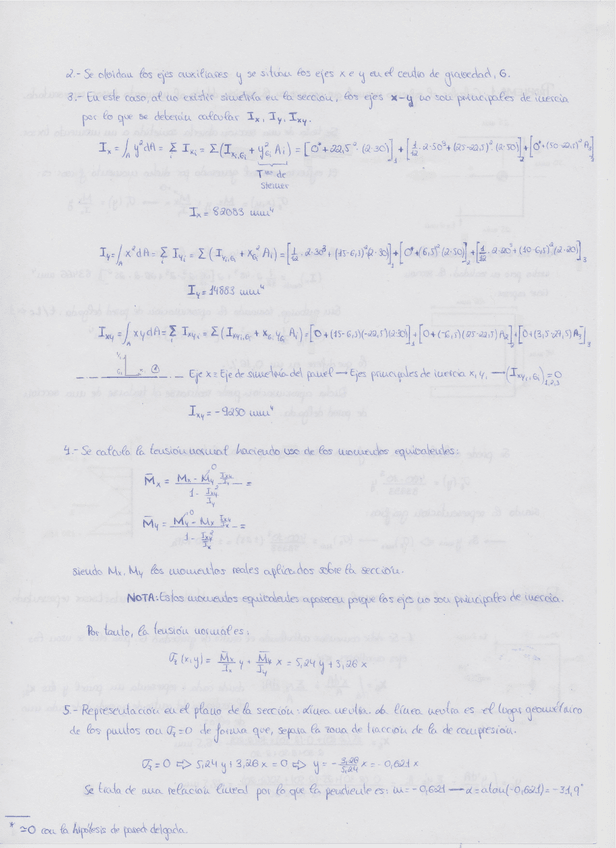 2.- Se olvidan los ejes auxiliares y se sitúan los ejes x e y en el centro de gravedad, G.
3.- En este caso, al no existir simetría en la sección, los ejes x-y no son principales de inercia
por lo que se deberán calcular Ix, Iy, Ixy.
Ix = ∫A y² dA = Σi Ixi = Σ (Ixi,Gi + yGi² Ai) = [0* + 22,5² (2·30)]1 + [1/12 · 2·50³ + (25-22,5)² (2·50)]2 + [0* + (50-22,5)² A3]3
Tma de
Steiner
Ix = 82083 mm⁴
Iy = ∫A x² dA = Σi Iyi = Σ (Iyi,Gi + xGi² Ai) = [1/12 · 2·30³ + (15-6,5)² (2·30)]1 + [0* + (6,5)² (2·50)]2 + [1/12 · 2·20³ + (10-6,5)² (2·20)]3
Iy = 14883 mm⁴
Ixy = ∫A xy dA = Σi Ixyi = Σ (Ixyi,Gi + xGi yGi Ai) = [0 + (15-6,5)(-22,5)(2·30)]1 + [0 + (-6,5)(25-22,5) A2]2 + [0 + (3,5·27,5) A3]3
Eje x = Eje de simetría del panel → Ejes principales de inercia xi yi → (Ixyi,Gi)1,2,3 = 0
Ixy = -9250 mm⁴
4.- Se calcula la tensión normal haciendo uso de los momentos equivalentes:
siendo Mx, My los momentos reales aplicados sobre la sección.
NOTA: Estos momentos equivalentes aparecen porque los ejes no son principales de inercia.
Por tanto, la tensión normal es:
σz (x,y) = M̄x/Ix y + M̄y/Iy x = 5,24 y + 3,26 x
5.- Representación en el plano de la sección: Línea neutra. La línea neutra es el lugar geométrico
de los puntos con σz = 0 de forma que, separa la zona de tracción de la de compresión.
σz = 0 ⇨ 5,24 y + 3,26 x = 0 ⇨ y = - 3,26/5,24 x = - 0,621 x
Se trata de una relación lineal por lo que la pendiente es: m = -0,621 → α = atan(-0,621) = -31,9°
* ≃ 0 con la hipótesis de pared delgada.